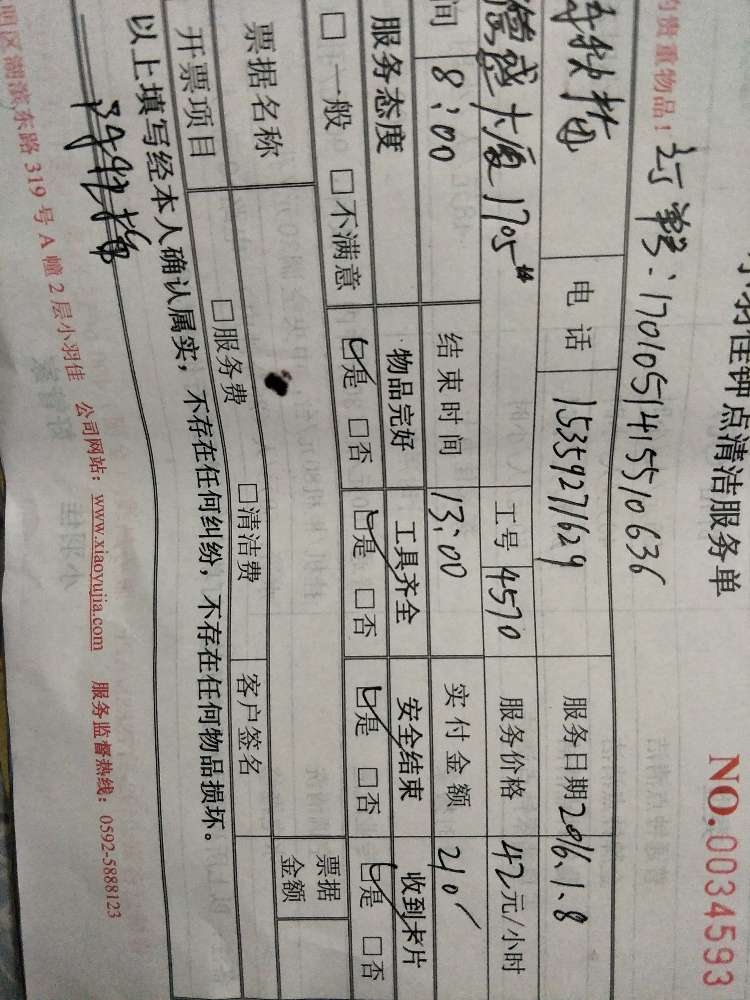 小羽佳钟点清洁服务单
NO.0034593
的贵重物品！ 订单号：1701051415510636
电话 15359271629 服务日期 2016.1.8
德盛大厦1705# 工号 4570 服务价格 42元/小时
间 8:00 结束时间 13:00 实付金额 210
服务态度 物品完好 工具齐全 安全结束 收到卡片
□一般 □不满意 □是 □否 □是 □否 □是 □否 □是 □否
票据名称 票据金额
开票项目 □服务费 □清洁费 客户签名
以上填写经本人确认属实，不存在任何纠纷，不存在任何物品损坏。
明区湖滨东路319号A幢2层小羽佳 公司网站：www.xiaoyujia.com 服务监督热线：0592-5888123